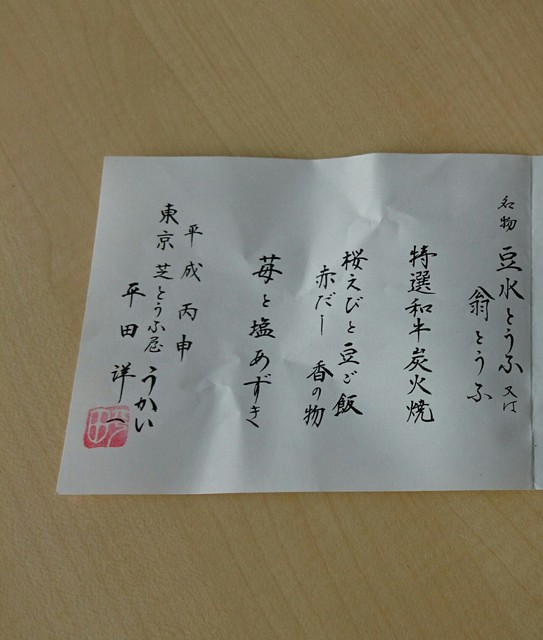 名物 豆水とうふ 又は
翁とうふ
特選和牛炭火焼
桜えびと豆ご飯
赤だし 香の物
苺と塩あずき
平成丙申
東京 芝とうふ屋うかい
平田 祥一